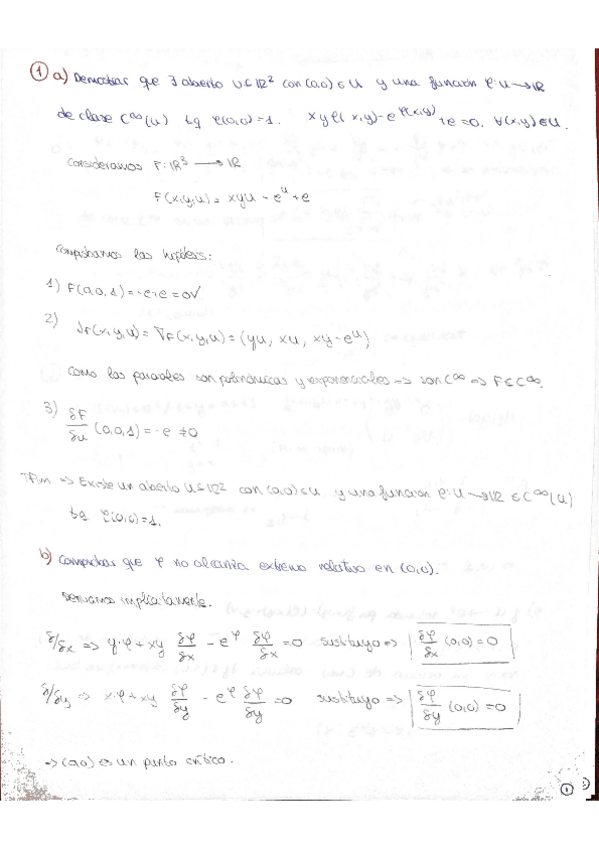 ① a) Demostrar que ∃ abierto U⊆ℝ² con (0,0)∈U y una función φ:U→ℝ
de clase C^∞(U) tq φ(0,0)=1. xyφ(x,y)-e^φ(x,y)+e=0. ∀(x,y)∈U.
Consideramos F:ℝ³→ℝ
F(x,y,u)=xyu-e^u+e
Comprobamos las hipótesis:
1) F(0,0,1)=-e+e=0✓
2) J_F(x,y,u)=∇F(x,y,u)=(yu, xu, xy-e^u)
Como las parciales son polinómicas y exponenciales => son C^∞ => F∈C^∞.
3) δF/δu (0,0,1)=-e≠0
TFIm => Existe un abierto U⊆ℝ² con (0,0)∈U y una función φ:U→ℝ∈C^∞(U)
tq φ(0,0)=1.
b) Comprobar que φ no alcanza extremo relativo en (0,0).
Derivamos implícitamente.
δ/δx => y·φ+xy δφ/δx - e^φ δφ/δx =0 sustituyo => δφ/δx (0,0)=0
δ/δy => x·φ+xy δφ/δy - e^φ δφ/δy =0 sustituyo => δφ/δy (0,0)=0
=> (0,0) es un punto crítico.
①